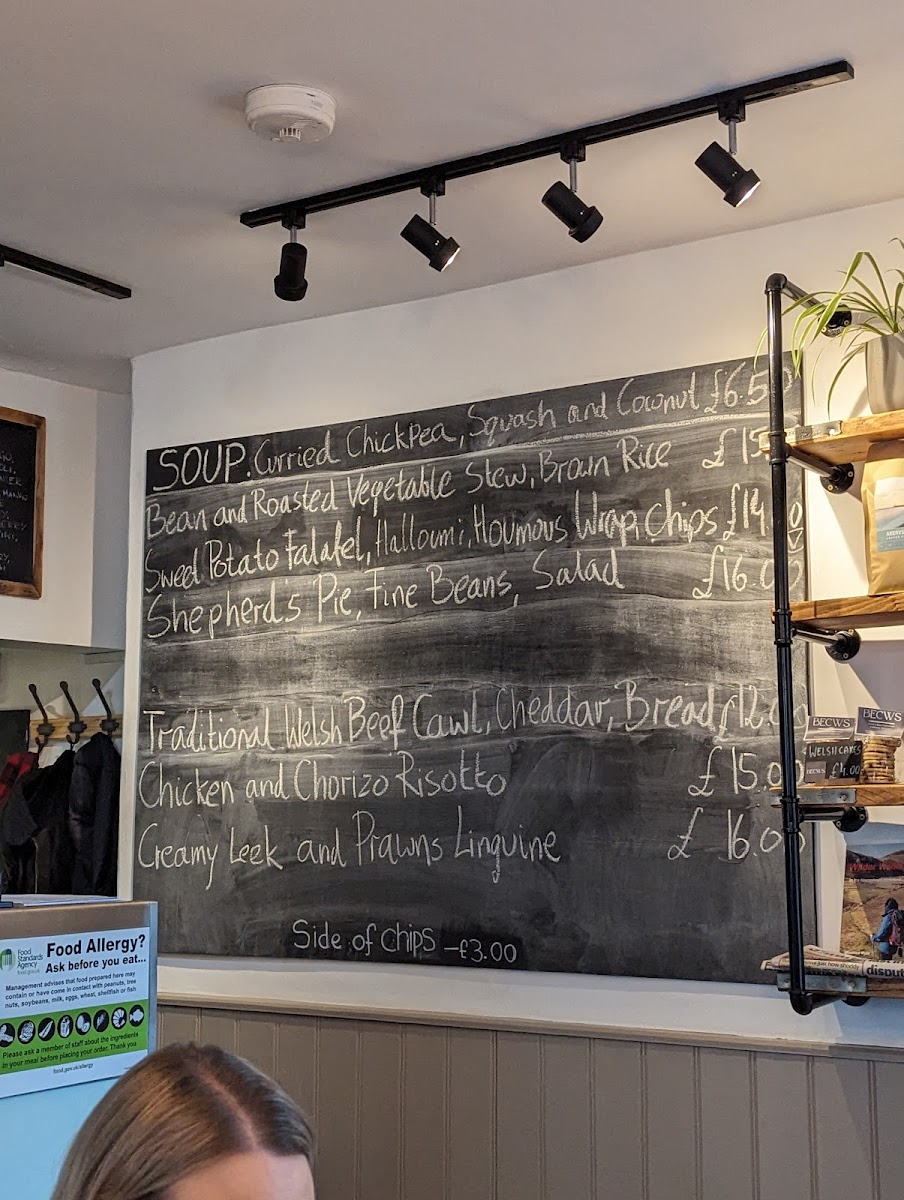 SOUP. Curried Chickpea, Squash and Coconut £6.50
Bean and Roasted Vegetable Stew, Brown Rice
Sweet Potato Falafel, Halloumi, Houmous Wrap, Chips
Shepherd's Pie, Fine Beans, Salad £16.00
Traditional Welsh Beef Cawl, Cheddar, Bread £12.00
Chicken and Chorizo Risotto £15.00
Creamy Leek and Prawns Linguine £16.00
Side of chips -£3.00
BECWS
BECWS
WELSH CAKES
BECWS £4.00
Food Standards Agency
food.gov.uk
Food Allergy?
Ask before you eat...
Management advises that food prepared here may
contain or have come in contact with peanuts, tree
nuts, soybeans, milk, eggs, wheat, shellfish or fish
Please ask a member of staff about the ingredients
in your meal before placing your order. Thank you
food.gov.uk/allergy